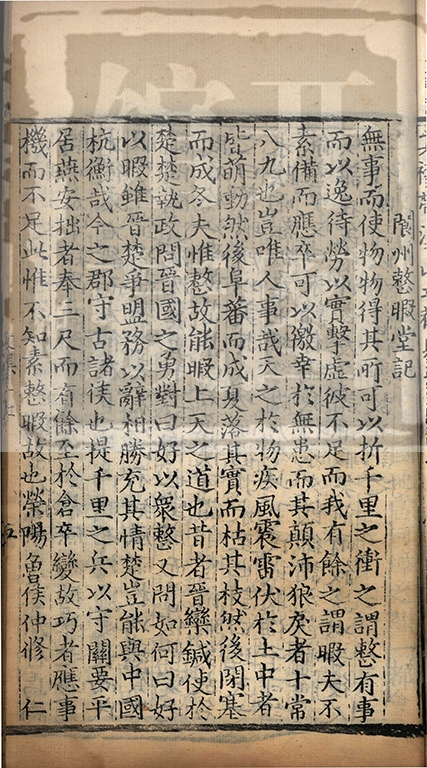 閬州整暇堂記
無事而使物物得其所可以折千里之衝之謂整有事
而以逸待勞以實擊虛彼不足而我有餘之謂暇夫不
素備而應卒可以徼幸於無患而其顛沛狼戾者十常
八九也豈唯人事哉天之於物疾風震雷伏於土中者
皆萌動然後阜蕃而成夏落其實而枯其枝然後閉塞
而成冬夫惟整故能暇上天之道也昔者晉欒鍼使於
楚楚執政問晉國之勇對曰好以衆整又問如何曰好
以暇雖晉楚爭盟務以辭相勝充其情楚豈能與中國
杭衡哉今之郡守古諸侯也提千里之兵以守關要平
居燕安拙者奉三尺而有餘至於倉卒變故巧者應事
機而不足此惟不知素整暇故也滎陽魯侯仲修仁